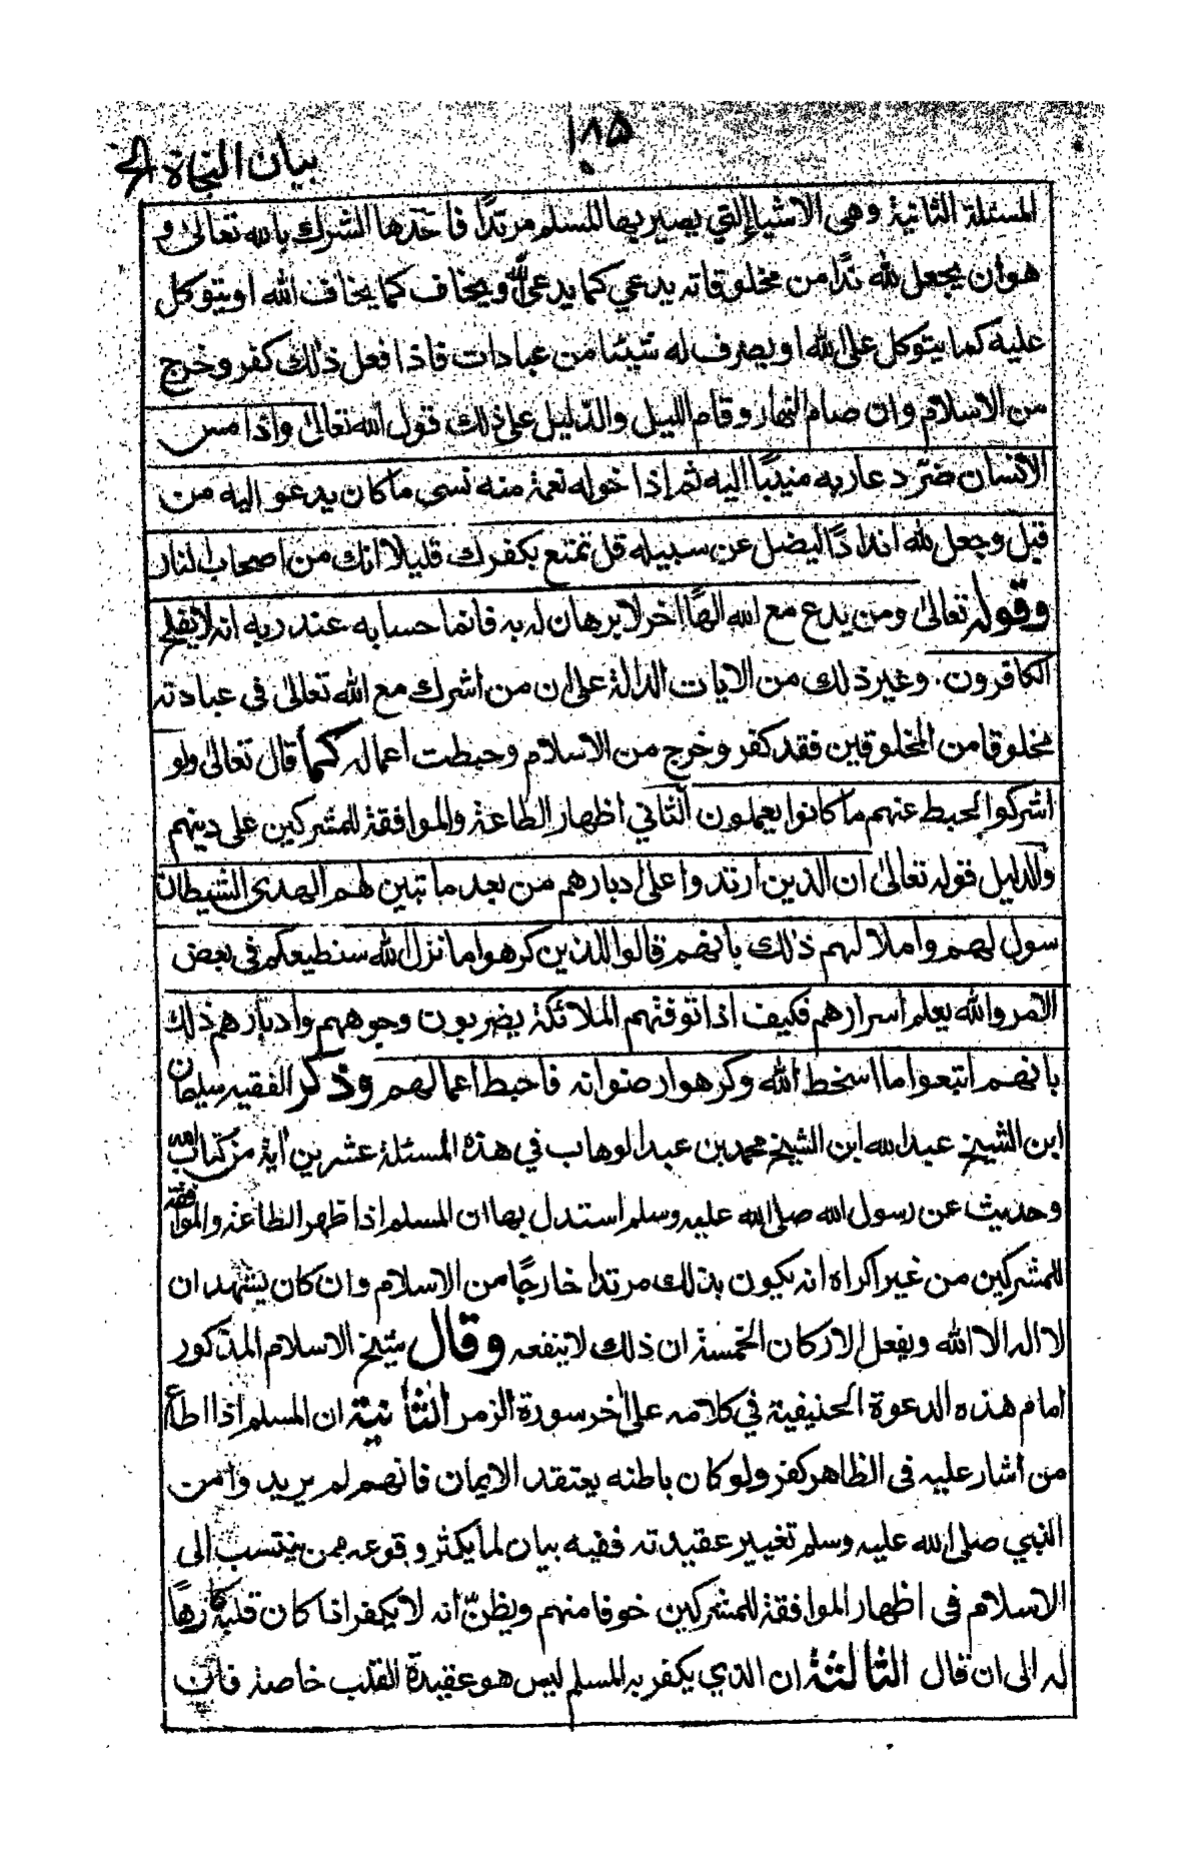 ١٨٥
بيان النجاة الخ
المسئلة الثانية وهى الاشياء التي يصير بها المسلم مرتدًا فأحدها الشرك بالله تعالىٰ و
هو ان يجعل لله ندًا من مخلوقاته يدعي كما يدعي الله ويخاف كما يخاف الله او يتوكل
عليه كما يتوكل على الله او يصرف له شيئا من عبادات فاذا فعل ذلك كفر وخرج
من الاسلام وان صام النهار وقام الليل والدليل على ذلك قول الله تعالىٰ واذا مس
الانسان ضرّ دعا ربه منيبًا اليه ثم اذا خوله نعمة منه نسى ما كان يدعو اليه من
قبل وجعل لله اندادًا ليضل عن سبيله قل تمتع بكفرك قليلا انك من اصحاب النار
وقوله تعالىٰ ومن يدع مع الله الهًا اخر لا برهان له به فانما حسابه عند ربه انه لا يفلح
الكافرون. وغير ذلك من الايات الدالة على ان من اشرك مع الله تعالىٰ فى عبادته
مخلوقا من المخلوقين فقد كفر وخرج من الاسلام وحبطت اعماله كما قال تعالىٰ ولو
اشركوا لحبط عنهم ما كانوا يعملون الثاني اظهار الطاعة والموافقة للمشركين على دينهم
والدليل قوله تعالىٰ ان الذين ارتدوا على ادبارهم من بعد ما تبين لهم الهدى الشيطان
سول لهم واملا لهم ذلك بأنهم قالوا للذين كرهوا ما نزل الله سنطيعكم فى بعض
الامر والله يعلم اسرارهم فكيف اذا توفتهم الملائكة يضربون وجوههم وادبارهم ذلك
بانهم اتبعوا ما اسخط الله وكرهوا رضوانه فاحبط اعمالهم وذكر الفقيه سليمان
ابن الشيخ عبد الله ابن الشيخ محمد بن عبد الوهاب في هذه المسئلة عشرين أية من كتاب الله
وحديث عن رسول الله صلى الله عليه وسلم استدل بها ان المسلم اذا ظهر الطاعة والموافقة
للمشركين من غير اكراه انه يكون بذلك مرتدا خارجًا من الاسلام وان كان يشهد ان
لا اله الا الله ويفعل الاركان الخمسة ان ذلك لا ينفعه وقال شيخ الاسلام المذكور
امام هذه الدعوة الحنيفية في كلامه على اخر سورة الزمر الثانية ان المسلم اذا اطاع
من اشار عليه فى الظاهر كفر ولو كان باطنه يعتقد الايمان فانهم لم يريدوا من
النبي صلى الله عليه وسلم تغيير عقيدته ففيه بيان لما يكثر وقوعه ممن ينتسب الى
الاسلام فى اظهار الموافقة للمشركين خوفا منهم ويظنّ انه لا يكفر اذا كان قلبه كارهًا
له الى ان قال الثالثة ان الذي يكفر به المسلم ليس هو عقيدة القلب خاصة فان